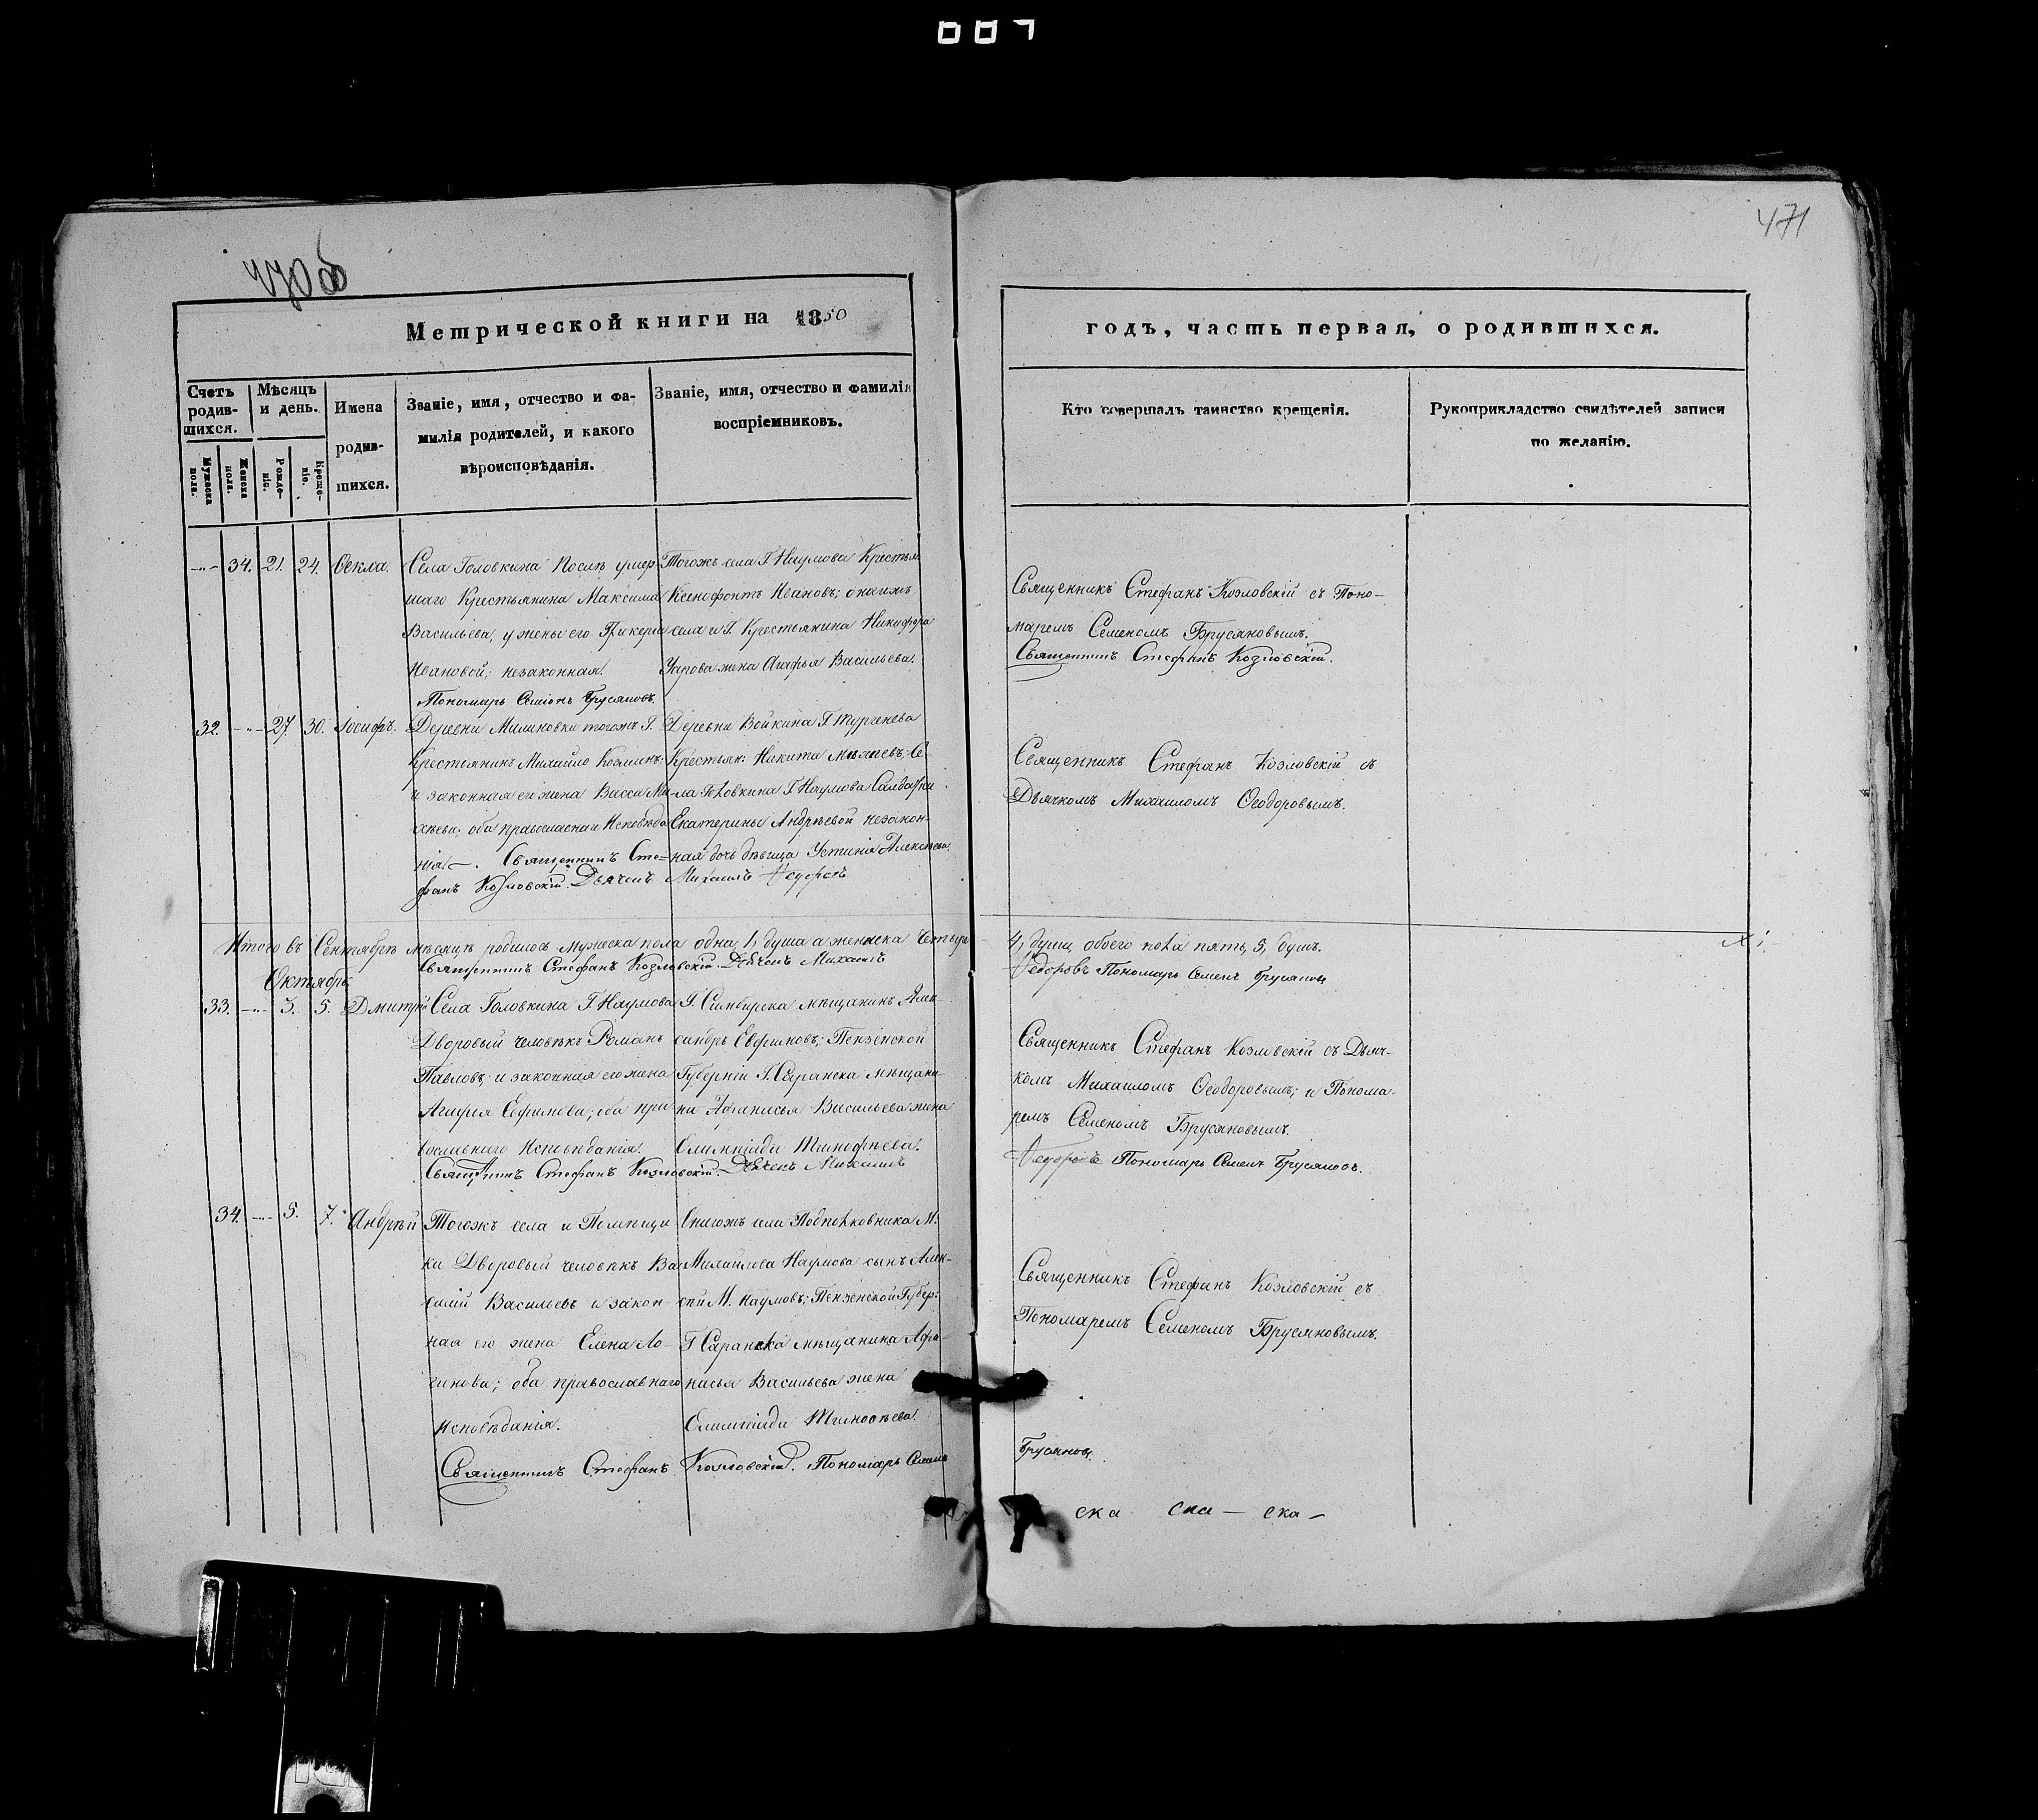 007
471
470об
Метрической книги на 1850
годъ, часть первая, о родившихся.
Счетъ родив-шихся.
Мѣсяцъ и день.
Имена родив-шихся.
Званіе, имя, отчество и фа-
милія родителей, и какого
вѣроисповѣданія.
Званіе, имя, отчество и фамилія
воспріемниковъ.
Кто совершалъ таинство крещенія.
Рукоприкладство свидѣтелей записи
по желанію.
Мужеска пола.
Женска пола.
Рожде-ніе.
Креще-ніе.
34. 21. 24. Ѳекла.
Села Головкина послѣ умер
шаго Крестьянина Максима
Васильева, у жены его Гликеріи
Ивановой; незаконная.
Пономарь Семіонъ Брусяновъ.
Тогожъ села Г. Наумова Крестьян
Ксенофонтъ Ивановъ; онагожъ
села и Г. Крестьянина Никифора
жена Агафья Васильева.
Священникъ Стефанъ Козловскій съ Поно-
маремъ Семеномъ Брусяновымъ.
Священникъ Стефанъ Козловскій.
32. 27. 30. Іосифъ.
Деревни тогожъ Г.
Крестьянинъ Михайло Козминъ
и законная его жена Васса Ми-
хѣева; оба православнаго Исповѣда
нія. Священникъ Сте=
фанъ Козловскій. Дьячекъ
Деревни Войкина Г. Тургенева
Крестьян: Никита Се-
ла Головкина Г. Наумова Салдатки
Екатерины Андреевой незакон-
ная дочь дѣвица Устинія Алексѣева.
Михаилъ Ѳедоровъ
Священникъ Стефанъ Козловскій съ
Дьячкомъ Михаиломъ Ѳеодоровымъ.
Итого въ Сентябрѣ мѣсяцѣ родилось мужеска пола одна, 1, душа а женска четыре
4, души, обоего пола пять, 5, душъ.
Священникъ Стефанъ Козловскій. Дьячекъ Михаилъ
Ѳедоровъ Пономарь Семенъ Брусяновъ
Октябрь
33. 3. 5. Дмитрій
Села Головкина Г. Наумова
Дворовый человѣкъ Романъ
Павловъ; и законная его жена
Агафія Евфимова; оба пра
вославнаго Исповѣданія.
Священникъ Стефанъ Козловскій. Дьячекъ Михаилъ
Г. Симбирска мѣщанинъ Алек-
сандръ Евфимовъ; Пензенской
Губерніи Г. Саранска мѣщани-
на Афанасья Васильева жена
Олимпіада Тимофѣева.
Священникъ Стефанъ Козловскій съ Дьяч-
комъ Михаиломъ Ѳеодоровымъ; и Понома-
ремъ Семеномъ Брусяновымъ.
Ѳедоровъ Пономарь Семенъ Брусяновъ.
34. 5. 7. Андрей
Тогожъ села и Помѣщи
ка Дворовый человѣкъ Ва
силій Васильевъ и закон-
ная его жена Елена Ло-
гинова; оба православнаго
Исповѣданія.
Священникъ Стефанъ
Онагожъ села Подполковника М.
Михайлова Наумова сынъ Алек-
сѣй М. Наумовъ; Пензенской Губер:
Г. Саранска мѣщанина Афа-
насья Васильева жена
Олимпіада Тимофѣева.
Козловскій. Пономарь Семенъ
Священникъ Стефанъ Козловскій съ
Пономаремъ Семеномъ Брусяновымъ.
Брусяновъ
ска ска — ска —